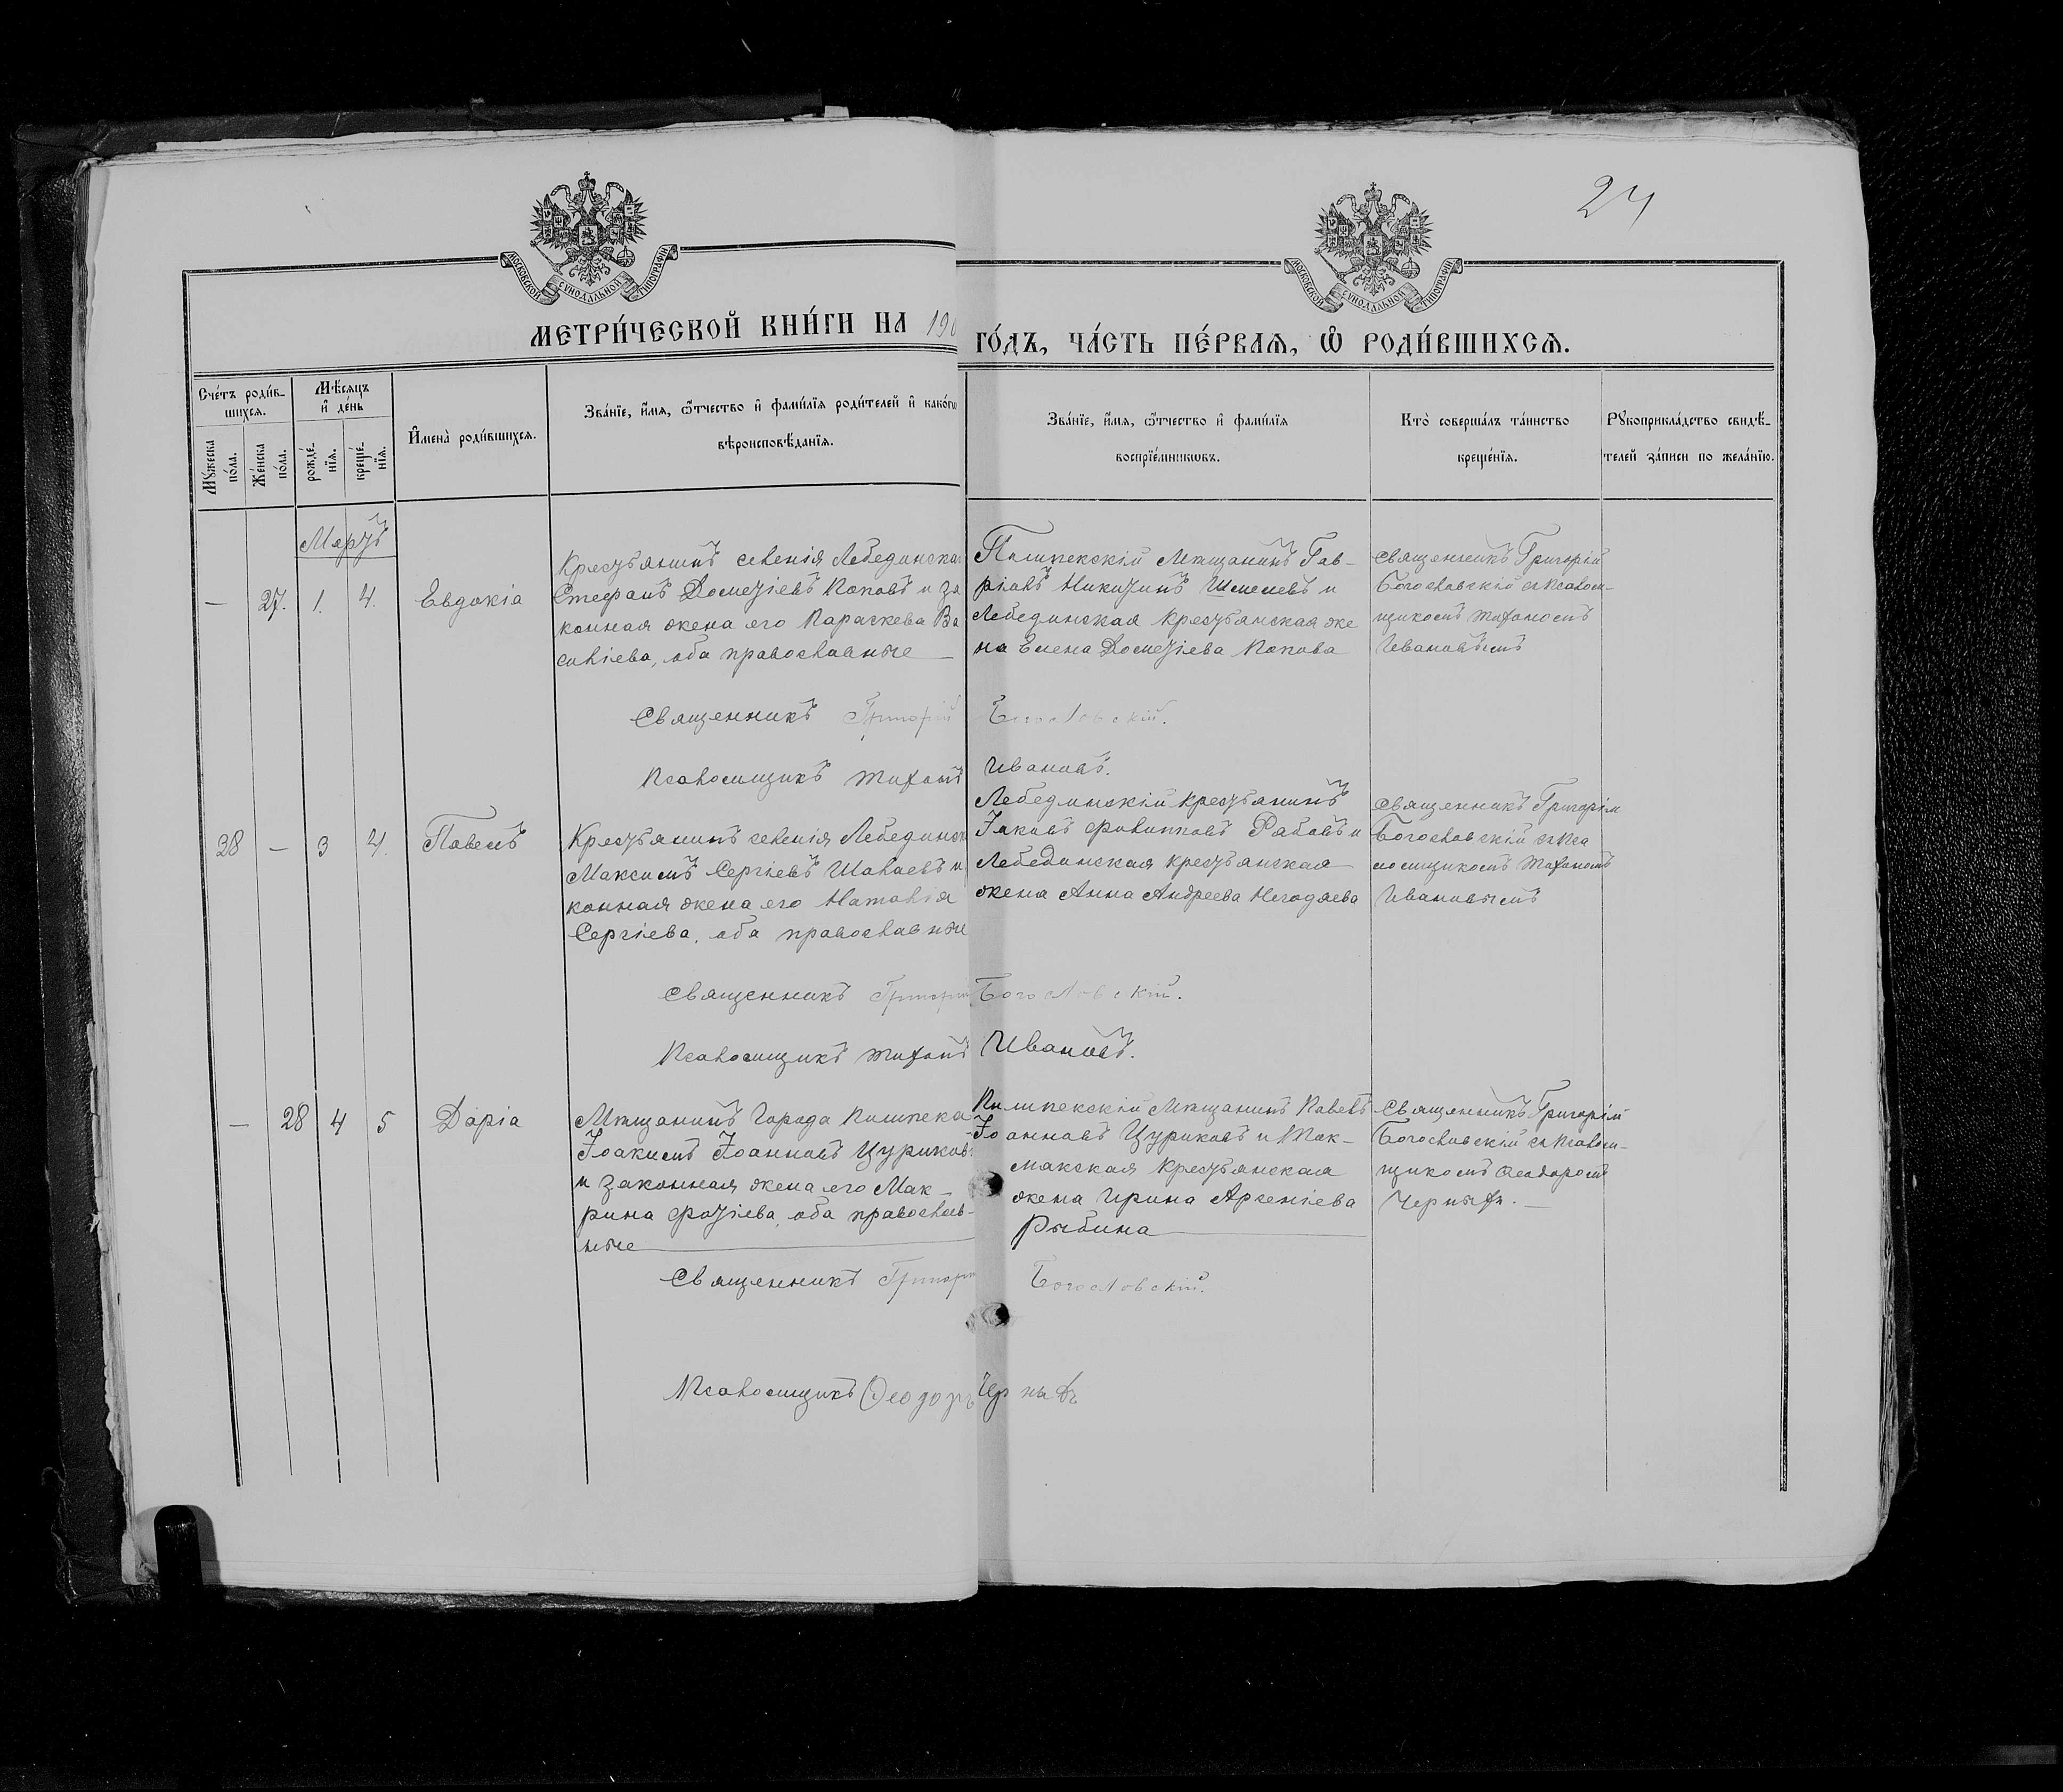 24
МОСКОВСКОЙ СѴНОДАЛЬНОЙ ТИПОГРАФІИ
МОСКОВСКОЙ СѴНОДАЛЬНОЙ ТИПОГРАФІИ
МЕТРИ́ЧЕСКОЙ КНИ́ГИ НА 190
ГО́ДЪ, ЧА́СТЬ ПЕ́РВАѦ, Ѽ РОДИ́ВШИХСѦ.
Сче́тъ роди́в-
шихсѧ.
Мꙋжеска
по́ла.
Же́нска
по́ла.
Мѣ́сѧцъ
и҆ де́нь
рожде́-
нїѧ.
креще́-
нїѧ.
И҆мена̀ роди́вшихсѧ.
Зва́нїе, и҆́мѧ, ѻ҆́тчество и҆ фами́лїѧ роди́телей и҆ како́гѡ
вѣроисповѣ́данїѧ.
Зва́нїе, и҆́мѧ, ѻ҆́тчество и҆ фами́лїѧ
воспрїе́мникѡвъ.
Кто̀ соверша́лъ та́инство
креще́нїѧ.
Рꙋкоприкла́дство свидѣ́-
телей за́писи по жела́нїю.
Мартъ
— 27. 1. 4. Евдокіа
Крестьянинъ селенія Лебединска
Стефанъ Дометіевъ Поповъ и за
конная жена его Параскева Ва
силіева, оба православные
Пишпекскій Мѣщанинъ Гав-
ріилъ Никитинъ Шмелевъ и
Лебединская крестьянская же
на Елена Дометіева Попова
Священникъ Григорій
Богословскій съ Псалом-
щикомъ Тихономъ
Ивановымъ
Священникъ Григорій Богословскій.
Псаломщикъ Тихонъ Ивановъ.
28 — 3 4. Павелъ
Крестьянинъ селенія Лебединск
Максимъ Сергіевъ Шаваевъ и
конная жена его Наталія
Сергіева, оба православные
Лебединскій крестьянинъ
Іаковъ Филипповъ Рабовъ и
Лебединская крестьянская
жена Анна Андреева Негодяева
Священникъ Григорій
Богословскій съ Пса
ломщикомъ Тихономъ
Ивановымъ
Священникъ Григорій Богословскій.
Псаломщикъ Тихонъ Ивановъ.
— 28 4 5 Дарія
Мѣщанинъ Города Пишпека
Іоакимъ Іоанновъ Цуриковъ
и законная жена его Мак-
рина Фотіева, оба православ-
ные
Пишпекскій Мѣщанинъ Павелъ
Іоанновъ Цуриковъ и Ток-
макская крестьянская
жена Ирина Арсеніева
Рыбина
Священникъ Григорій
Богословскій съ Псалом-
щикомъ Ѳеодоромъ
Черныхъ.
Священникъ Григорій Богословскій.
Псаломщикъ Ѳеодоръ Черныхъ